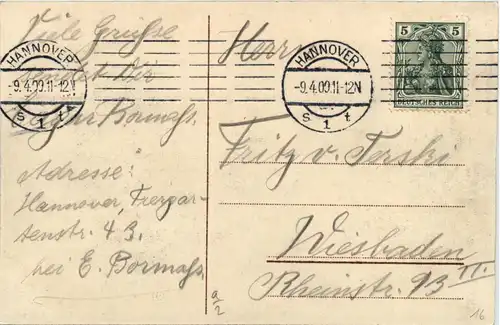 Viele Grüsse
sendet Dir
Bormass.
Adresse:
Hannover, Tiergar-
tenstr. 43.
bei E. Bormass.
HANNOVER
-9.4.09.11-12N
s 1 t
Herrn
HANNOVER
-9.4.09.11-12N
s 1 t
5 5
DEUTSCHES REICH
Fritz v. Torski
Wiesbaden
Rheinstr. 93 III.
a/2
16